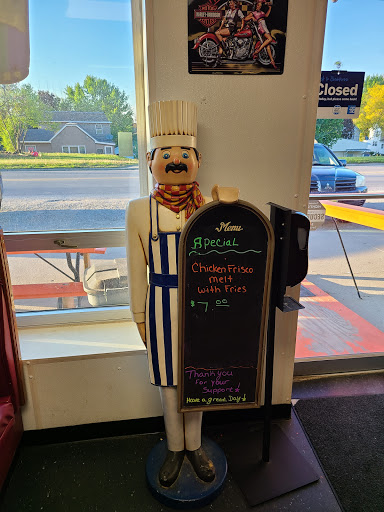 HARLEY-DAVIDSON
Closed
Menu
Special
Chicken Frisco
melt
with Fries
$7.00
Thank you
For your
Support!
Have a great Day!